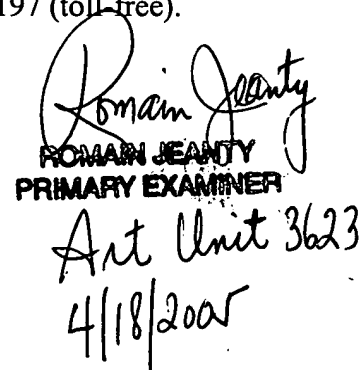 197 (toll-free).
Romain Jeanty
ROMAIN JEANTY
PRIMARY EXAMINER
Art Unit 3623
4/18/2005